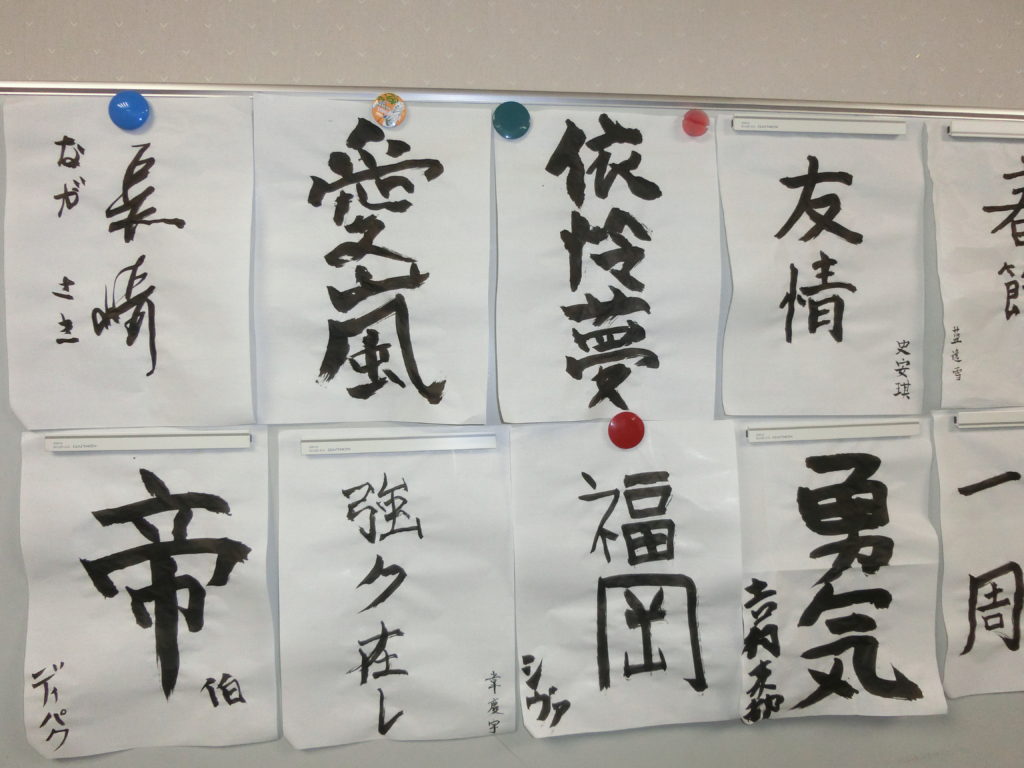 長崎
なが さき
愛嵐
依怜夢
友情
史安琪
春節
帝
伯
ディパク
強ク在レ
韋慶宇
福岡
シヴァ
勇気
吉村
一周